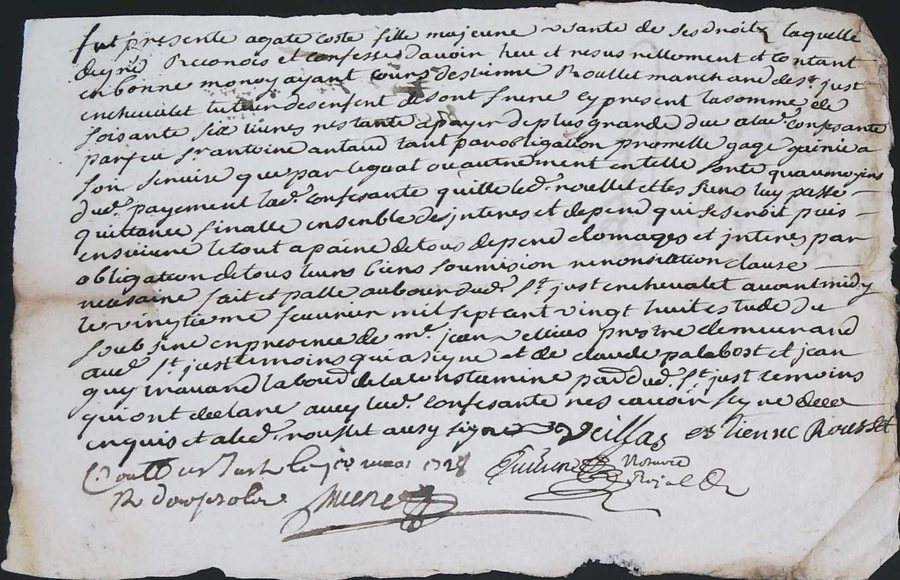 fut presente agate coste fille majeure usante de ses droits laquelle
de gré Reconois et confesse davoir heu et resus rellement et contant
en bonne monoy ayant cours destienne Rousset marchand de st just
en chevalet tuteur des enfent de sont frere cy present la somme de
soisante six livres restante a payer de plus grande due a lad. confesante
par feu sr antoine artaud tant par obligation promesse gage
son servise que par legual ou autrement en telle sorte quau moyens
dud. payement lad. confesante quitte led. rousset et les siens luy passe
quittance finalle ensemble des jnteres et depend qui sesroit puis
ensuivre le tout a paine de tous depend domages et jnteres par
obligation de tous leurs biens soumision renonsiation clause
nesesaire fait et passe au bour dud. st just en chevalet avant midy
le vingtieme feuvrier mil sept cent vingt huit estude du
soubsine en presence de mre jean prestre demeurand
aud. st just temoins qui a signe et de claude palabost et jean
laboud de la constamine par. dud. st just temoins
qui ont declare avey lad. confesante ne scavoir signe de ce
enquis et a led. rousset ausy signe Veillas estienne Rousset
Contlle a st Just le mars 1728
R douse sols
Notaire
Royal